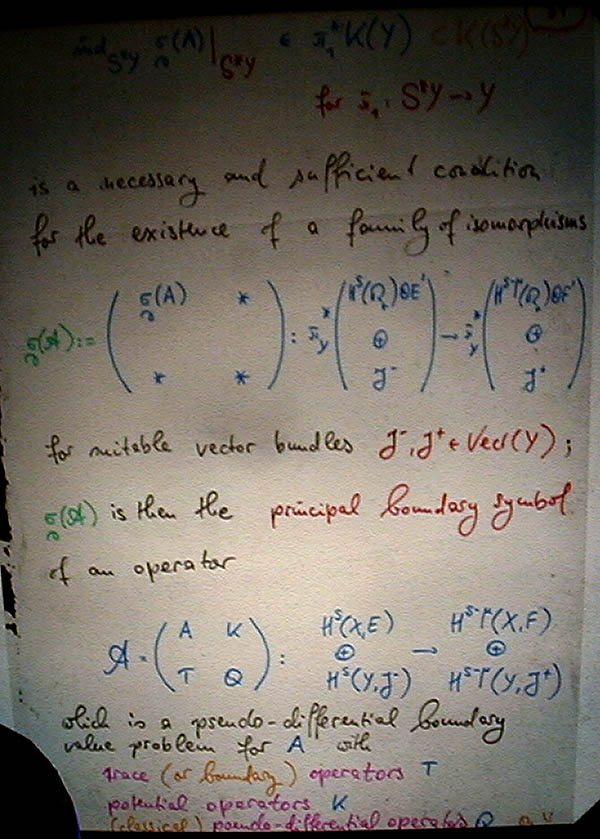 ind_{S*Y} σ_∂(A)|_{S*Y} ∈ π₁* K(Y) ⊂ K(S*Y)
for π₁ : S*Y → Y
is a necessary and sufficient condition
for the existence of a family of isomorphisms
σ_∂(𝒜) := ( σ_∂(A) * ; * * ) : π_Y* ( H^s(ℝ₊)⊗E' ⊕ J⁻ ) → π_Y* ( H^{s-μ}(ℝ₊)⊗F' ⊕ J⁺ )
for suitable vector bundles J⁻, J⁺ ∈ Vect(Y) ;
σ_∂(𝒜) is then the principal boundary symbol
of an operator
𝒜 = ( A K ; T Q ) : H^s(X,E) ⊕ H^s(Y,J⁻) → H^{s-μ}(X,F) ⊕ H^{s-μ}(Y,J⁺)
which is a pseudo-differential boundary
value problem for A with
trace (or boundary) operators T
potential operators K
(classical) pseudo-differential operators Q